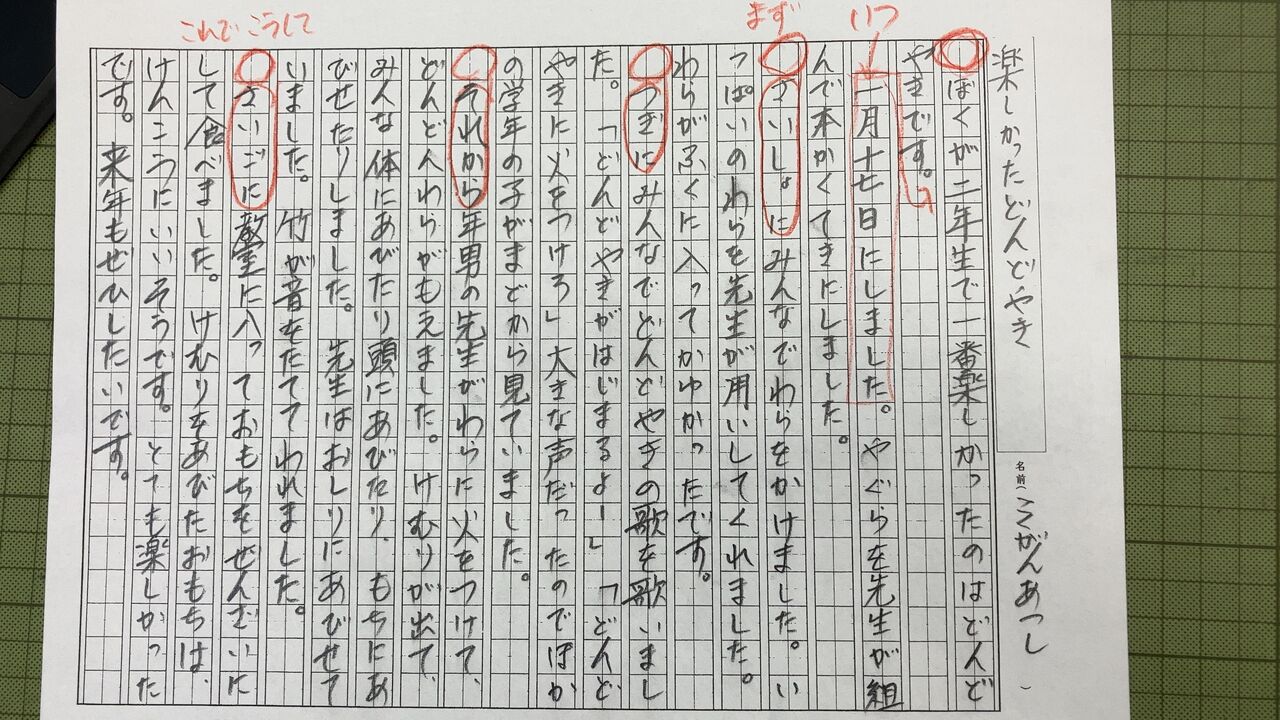 楽しかったどんどやき
名前(こくがんあつし)
いつ
まず
これで こうして
ぼくが二年生で一番楽しかったのはどんど
やきです。
一月十七日にしました。やぐらを先生が組
んで本かくてきにしました。
さいしょにみんなでわらをかけました。い
っぱいのわらを先生が用いしてくれました。
わらがふくに入ってかゆかったです。
つぎにみんなでどんどやきの歌を歌いまし
た。「どんどやきがはじまるよー」「どんど
やきに火をつけろ」大きな声だったのでほか
の学年の子がまどから見ていました。
それから年男の先生がわらに火をつけて、
どんどんわらがもえました。けむりが出て、
みんな体にあびたり頭にあびたり、もちにあ
びせたりしました。先生はおしりにあびせて
いました。竹が音をたててわれました。
さいごに教室に入っておもちをぜんざいに
して食べました。けむりをあびたおもちは、
けんこうにいいそうです。とても楽しかった
です。来年もぜひしたいです。